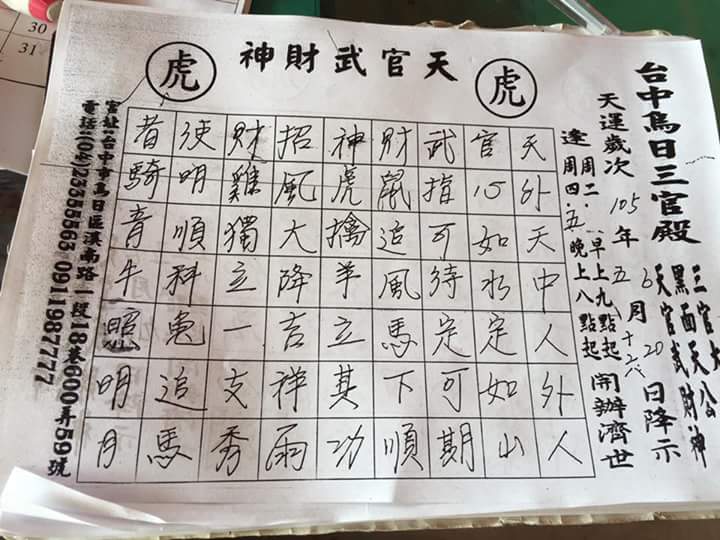 台中烏日三官殿
三官大
黑面天公
天官武財神
天運歲次105年五6月十六20日降示
逢周二、早上九點起
周四、五晚上八點起
開辦濟世
天官武財神
虎
虎
天外天中人外人
官心如水定如山
武指可待定可期
財鼠追風馬下順
神虎擒羊立其功
招風大降吉祥雨
財雞獨立一支秀
使明順科兔追馬
者騎青牛照明月
宮址:台中市烏日區溪南路一段18巷600弄59號
電話:(04)23355563 0911987777
30
31